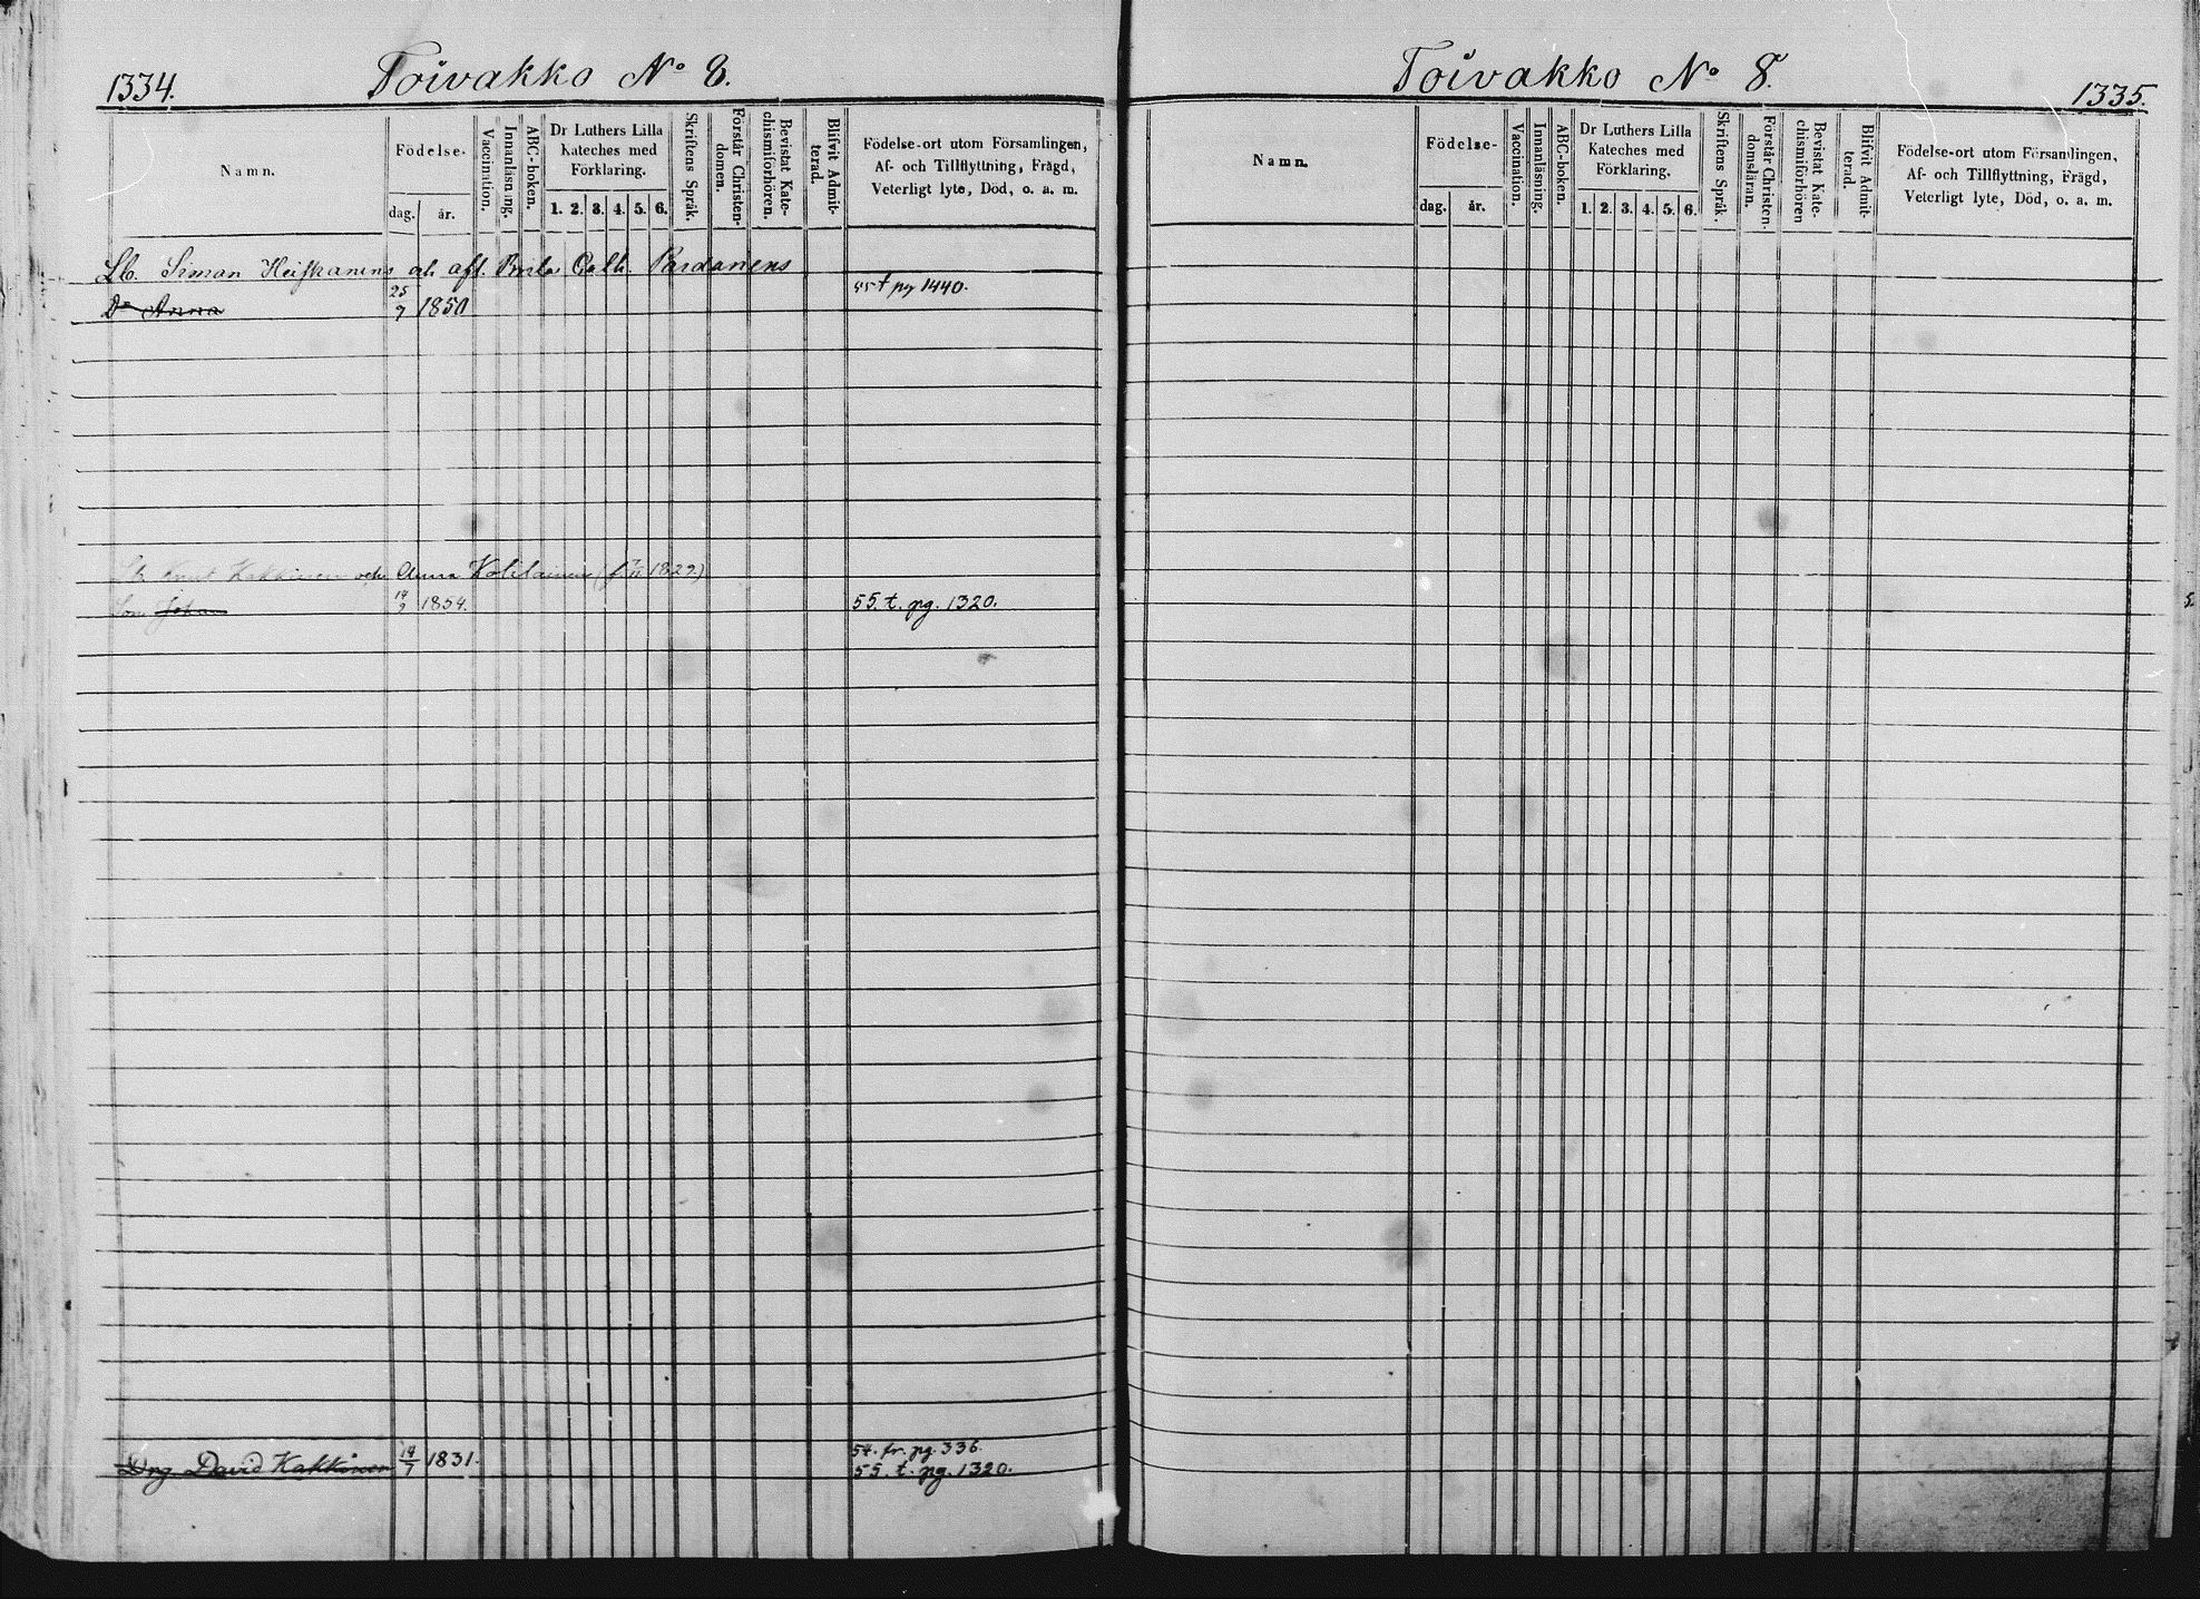 1334.
Toivakko No 8.
Namn.
Födelse-
dag.
år.
Vaccination.
Innanläsning.
ABC-boken.
Dr Luthers Lilla
Kateches med
Förklaring.
1. 2. 3. 4. 5. 6.
Skriftens Språk.
Förstår Christen-
domen.
Bevistat Kate-
chismiförhören.
Blifvit Admit-
terad.
Födelse-ort utom Församlingen,
Af- och Tillflyttning, Frägd,
Veterligt lyte, Död, o. a. m.
Lb. Simon Heiskanens och afl. Cath. Pardanens
Dr Anna 25/9 1850 55 t pg 1440.
Lb. Knut Kakkinen och Anna Kolilainen (f. 1829)
Son Johan 19/9 1854. 55. t. pg. 1320.
54. fr. pg. 336.
Drg David Kakkinen 19/7 1831. 55. t. pg. 1320.
Toivakko No 8.
1335.
Namn.
Födelse-
dag.
år.
Vaccination.
Innanläsning.
ABC-boken.
Dr Luthers Lilla
Kateches med
Förklaring.
1. 2. 3. 4. 5. 6.
Skriftens Språk.
Förstår Christen-
domsläran.
Bevistat Kate-
chismiförhören
Blifvit Admit-
terad.
Födelse-ort utom Församlingen,
Af- och Tillflyttning, Frägd,
Veterligt lyte, Död, o. a. m.